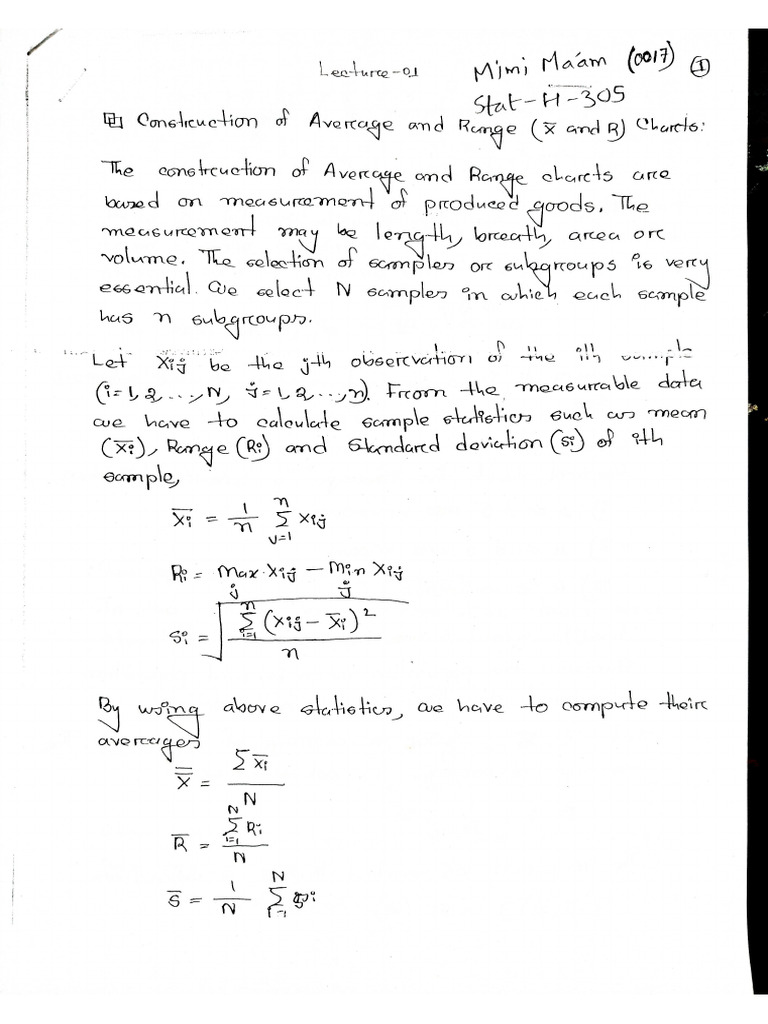 Lecture-01
Mimi Ma'am (0017) ①
Stat-H-305
Construction of Average and Range (X̄ and R) Charts:
The construction of Average and Range charts are
based on measurement of produced goods. The
measurement may be length, breath, area or
volume. The selection of samples or subgroups is very
essential. We select N samples in which each sample
has n subgroups.
Let Xij be the jth observation of the ith sample
(i=1,2...,N, j=1,2...,n). From the measurable data
we have to calculate sample statistics such as mean
(X̄i), Range (Ri) and Standard deviation (Si) of ith
sample,
X̄i = 1/n Σ_{j=1}^{n} Xij
Ri = Max_j Xij − Min_j Xij
Si = √( Σ_{i=1}^{n} (Xij − X̄i)² / n )
By using above statistics, we have to compute their
averages
X̿ = Σ X̄i / N
R̄ = Σ_{i=1}^{N} Ri / N
S̄ = 1/N Σ_{i=1}^{N} Si